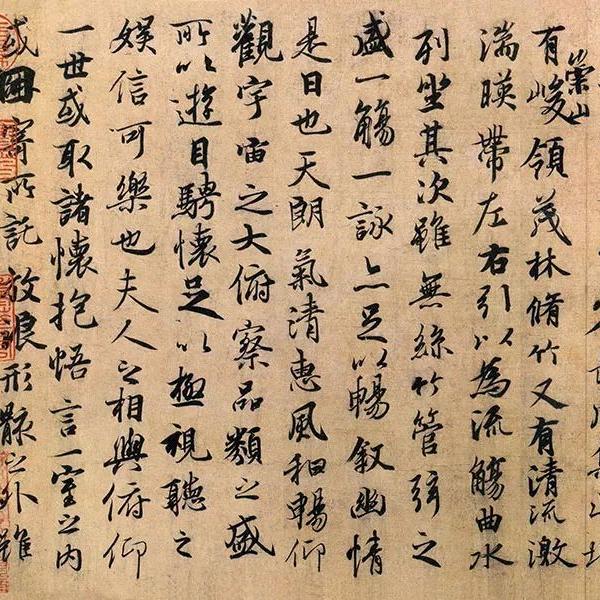 有崇山峻領茂林脩竹又有清流激
湍暎帶左右引以為流觴曲水
列坐其次雖無絲竹管弦之
盛一觴一詠亦足以暢叙幽情
是日也天朗氣清惠風和暢仰
觀宇宙之大俯察品類之盛
所以遊目騁懷足以極視聽之
娛信可樂也夫人之相與俯仰
一世或取諸懷抱悟言一室之內
或因寄所託放浪形骸之外雖